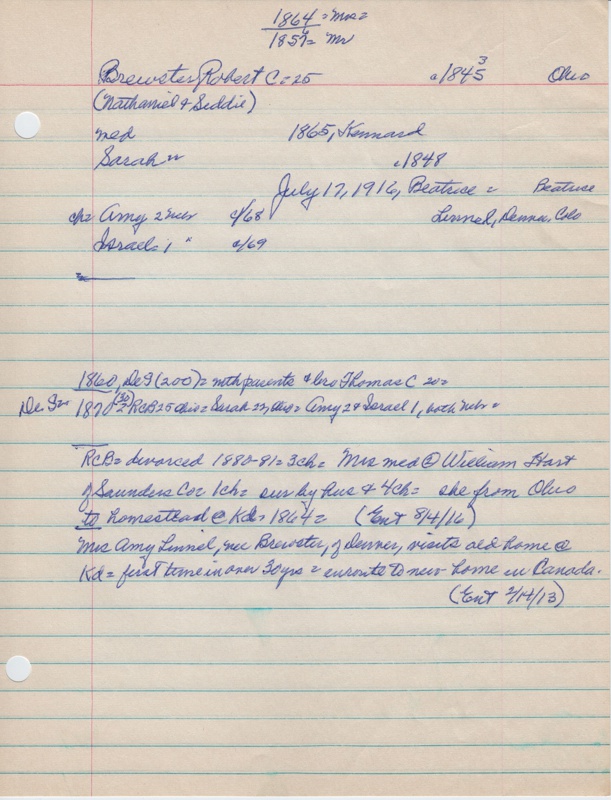 1864 = Mrs =
1857 = Mr
Brewster, Robert C = 25 c1845 3 Ohio
(Nathaniel & Seddie)
med 1865, Kennard
Sarah = c1848
July 17, 1916, Beatrice = Beatrice
ch = Amy 2 Nebr c/68 Linnel, Denver, Colo
Israel = 1 " c/69
1860, De9 (200) = with parents & bro Thomas C 20 =
1870 RCB 25 Ohio = Sarah 22, Ohio = Amy 2 & Israel 1, both Nebr =
RCB = divorced 1880-81 = 3ch = Mrs med @ William Hart
of Saunders Co = 1ch = sur by hus & 4ch = she from Ohio
to homestead @ Kd = 1864 = (Ent 8/4/16)
Mrs Amy Linnel, nee Brewster, of Denver, visits old home @
Kd = first time in over 30 yrs = enroute to new home in Canada.
(Ent 2/14/13)